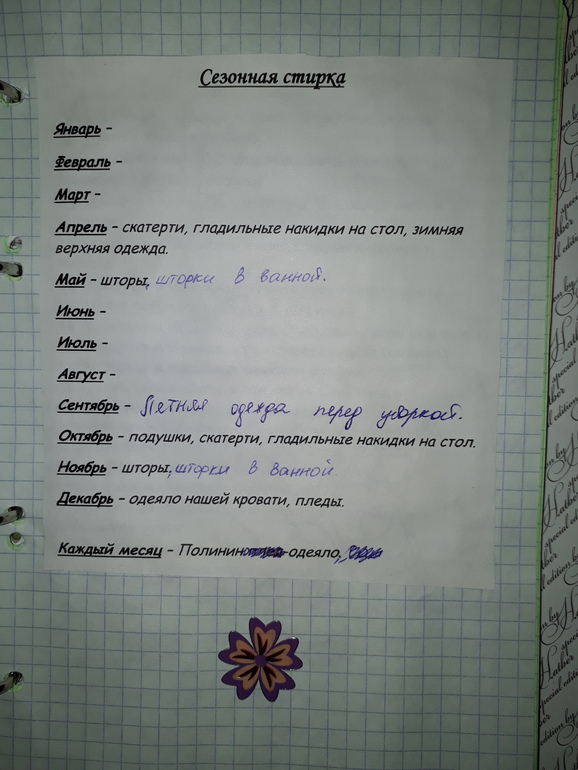 Сезонная стирка
Январь –
Февраль –
Март –
Апрель – скатерти, гладильные накидки на стол, зимняя
верхняя одежда.
Май – шторы, шторки в ванной.
Июнь –
Июль –
Август –
Сентябрь – Летняя одежда перед уборкой.
Октябрь – подушки, скатерти, гладильные накидки на стол.
Ноябрь – шторы, шторки в ванной
Декабрь – одеяло нашей кровати, пледы.
Каждый месяц – Полинино одеяло,